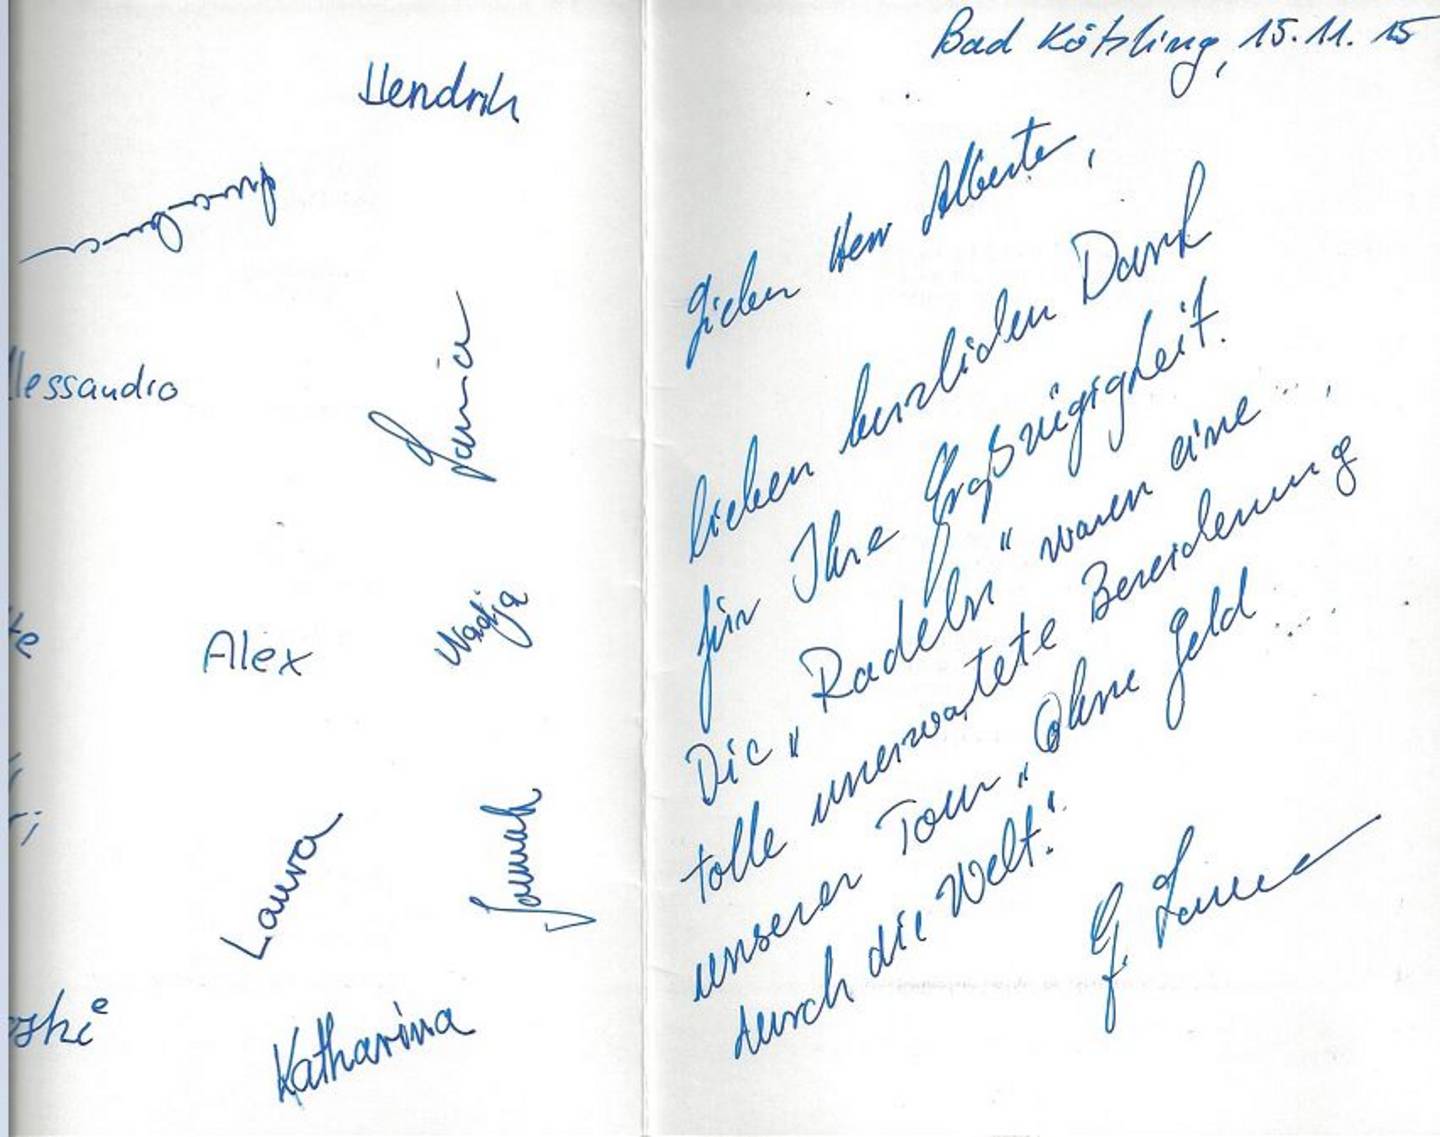 Hendrik
lessandro
Alex
Nadja
Laura
Jannah
Katharina
Bad Kötzting, 15.11.15
Lieber Herr Alberte,
lieben herzlichen Dank
für Ihre Großzügigkeit.
Die „Radeln“ waren eine
tolle unerwartete Bereicherung
unserer Tour „Ohne Geld
durch die Welt“.